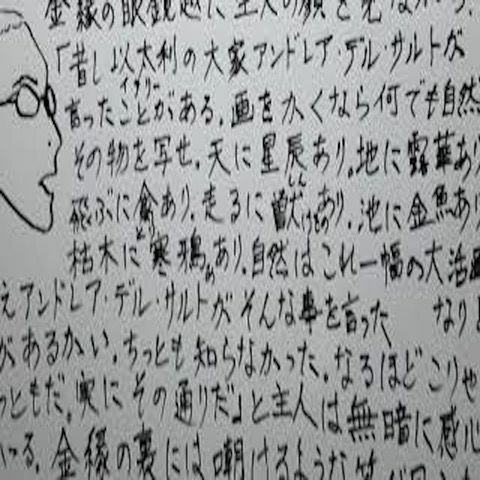 金縁の眼鏡越に主人の顔を見ながら、
「昔し以太利の大家アンドレア・デル・サルトが
イタリー
言ったことがある。画をかくなら何でも自然
その物を写せ。天に星辰あり。地に露華あり
しん
飛ぶに禽あり。走るに獣あり。池に金魚あり
とり
けもの
枯木に寒鴉あり。自然はこれ一幅の大活画
なり
えアンドレア・デル・サルトがそんな事を言った
があるかい。ちっとも知らなかった。なるほどこりゃ
っともだ。実にその通りだ」と主人は無暗に感心
いる。金縁の裏には嘲けるような笑が